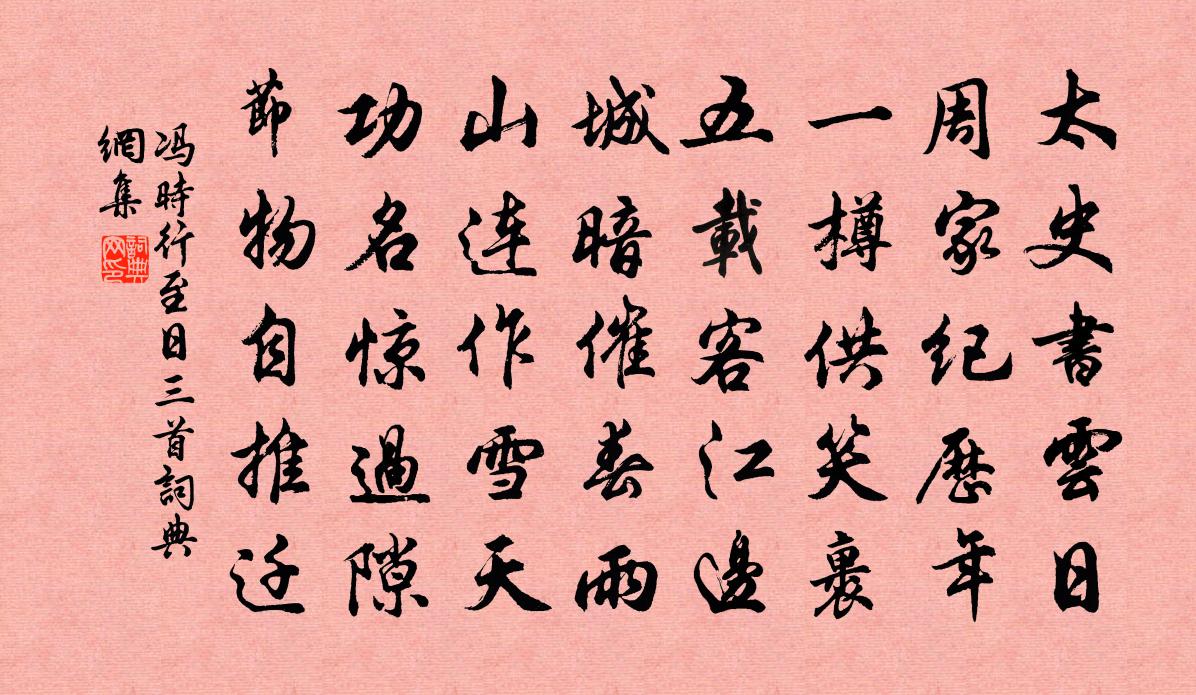 太史書雲日
周家纪歷年
一樽供笑裏
五載客江邊
城暗催春雨
山连作雪天
功名惊過隙
節物自推迁
冯時行至日三首詞典
網集
詞典网印